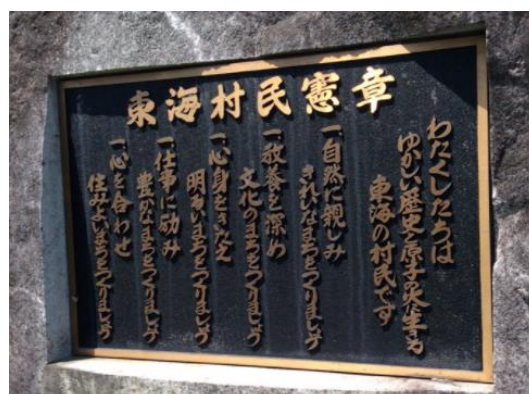 東海村民憲章
わたくしたちは
ゆかしい歴史と原子の火に生きる
東海の村民です
一、自然に親しみ
きれいなまちをつくりましょう
一、教養を深め
文化のまちをつくりましょう
一、心身をきたえ
明るいまちをつくりましょう
一、仕事に励み
豊かなまちをつくりましょう
一、心を合わせ
住みよいまちをつくりましょう